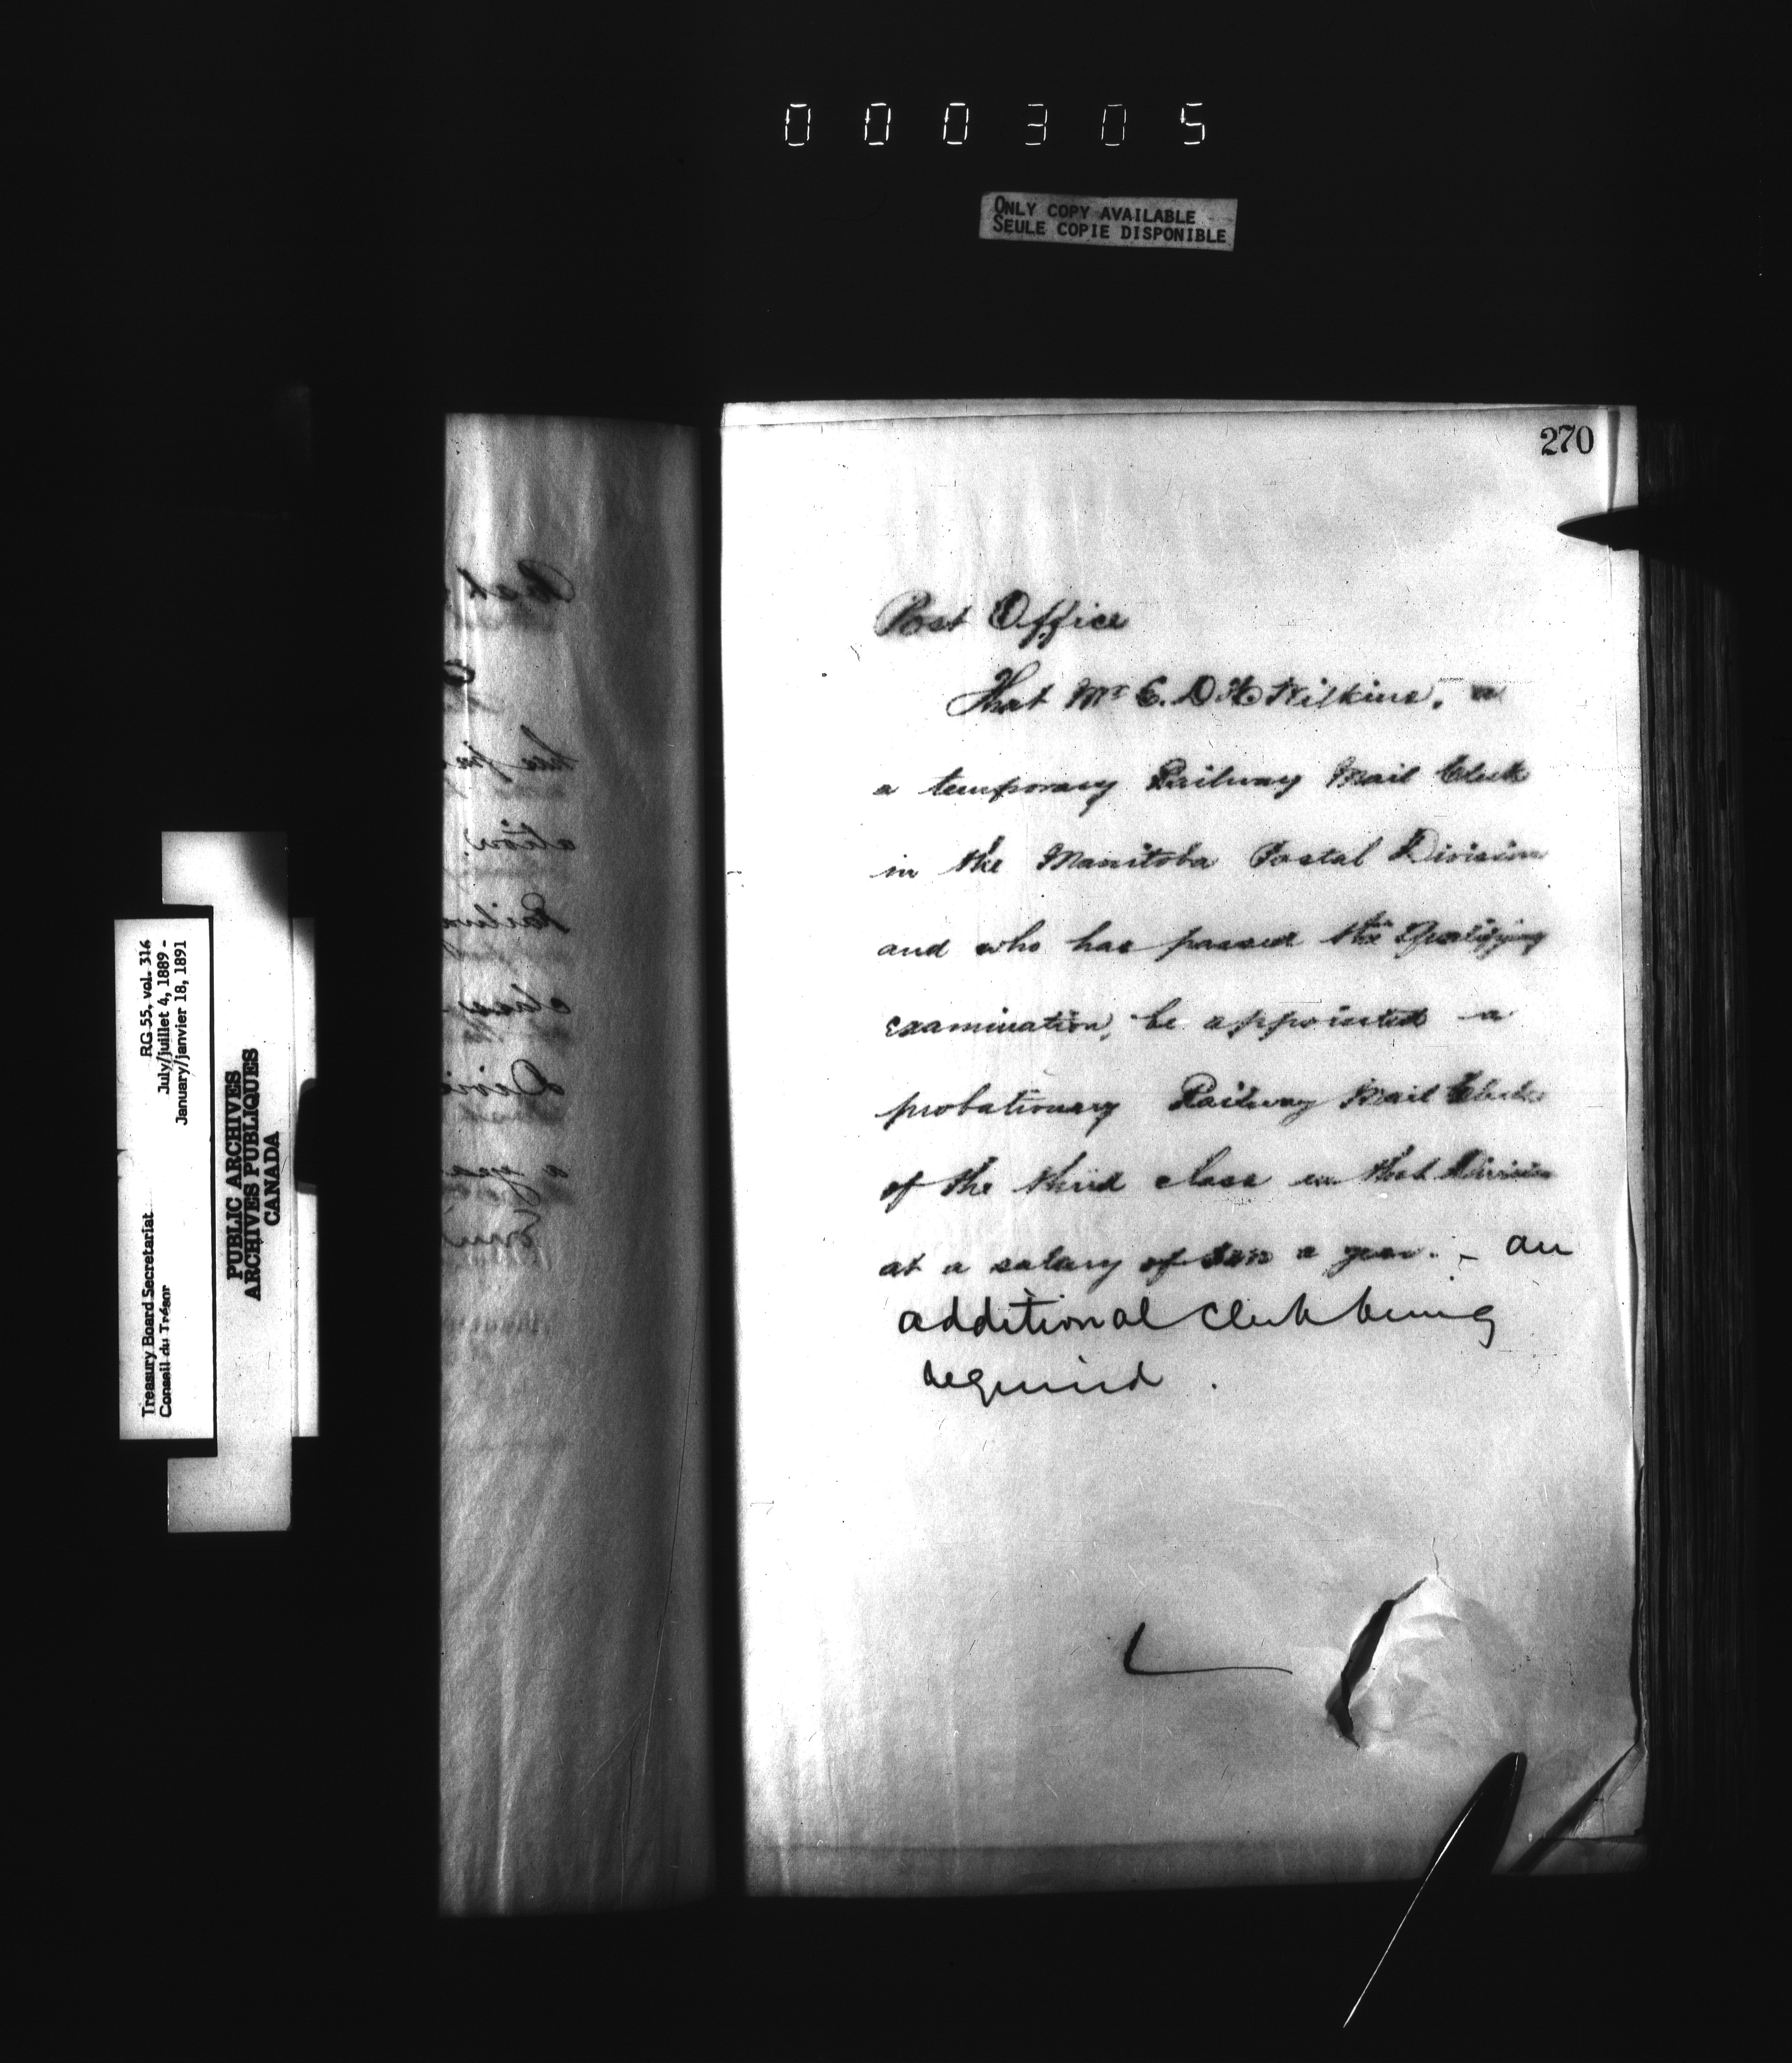 000305
ONLY COPY AVAILABLE
SEULE COPIE DISPONIBLE
270
Post Office
That Mr E. D. H. Wilkins, a
a temporary Railway Mail Clerk
in the Manitoba Postal Division
and who has passed the Qualifying
examination, be appointed a
probationary Railway Mail Clerk
of the third class in that Division
at a salary of a year. - an
additional Clerk being
required.
RG 55, vol. 316
July/juillet 4, 1889 -
January/janvier 18, 1891
Treasury Board Secretariat
Conseil du Trésor
PUBLIC ARCHIVES
ARCHIVES PUBLIQUES
CANADA